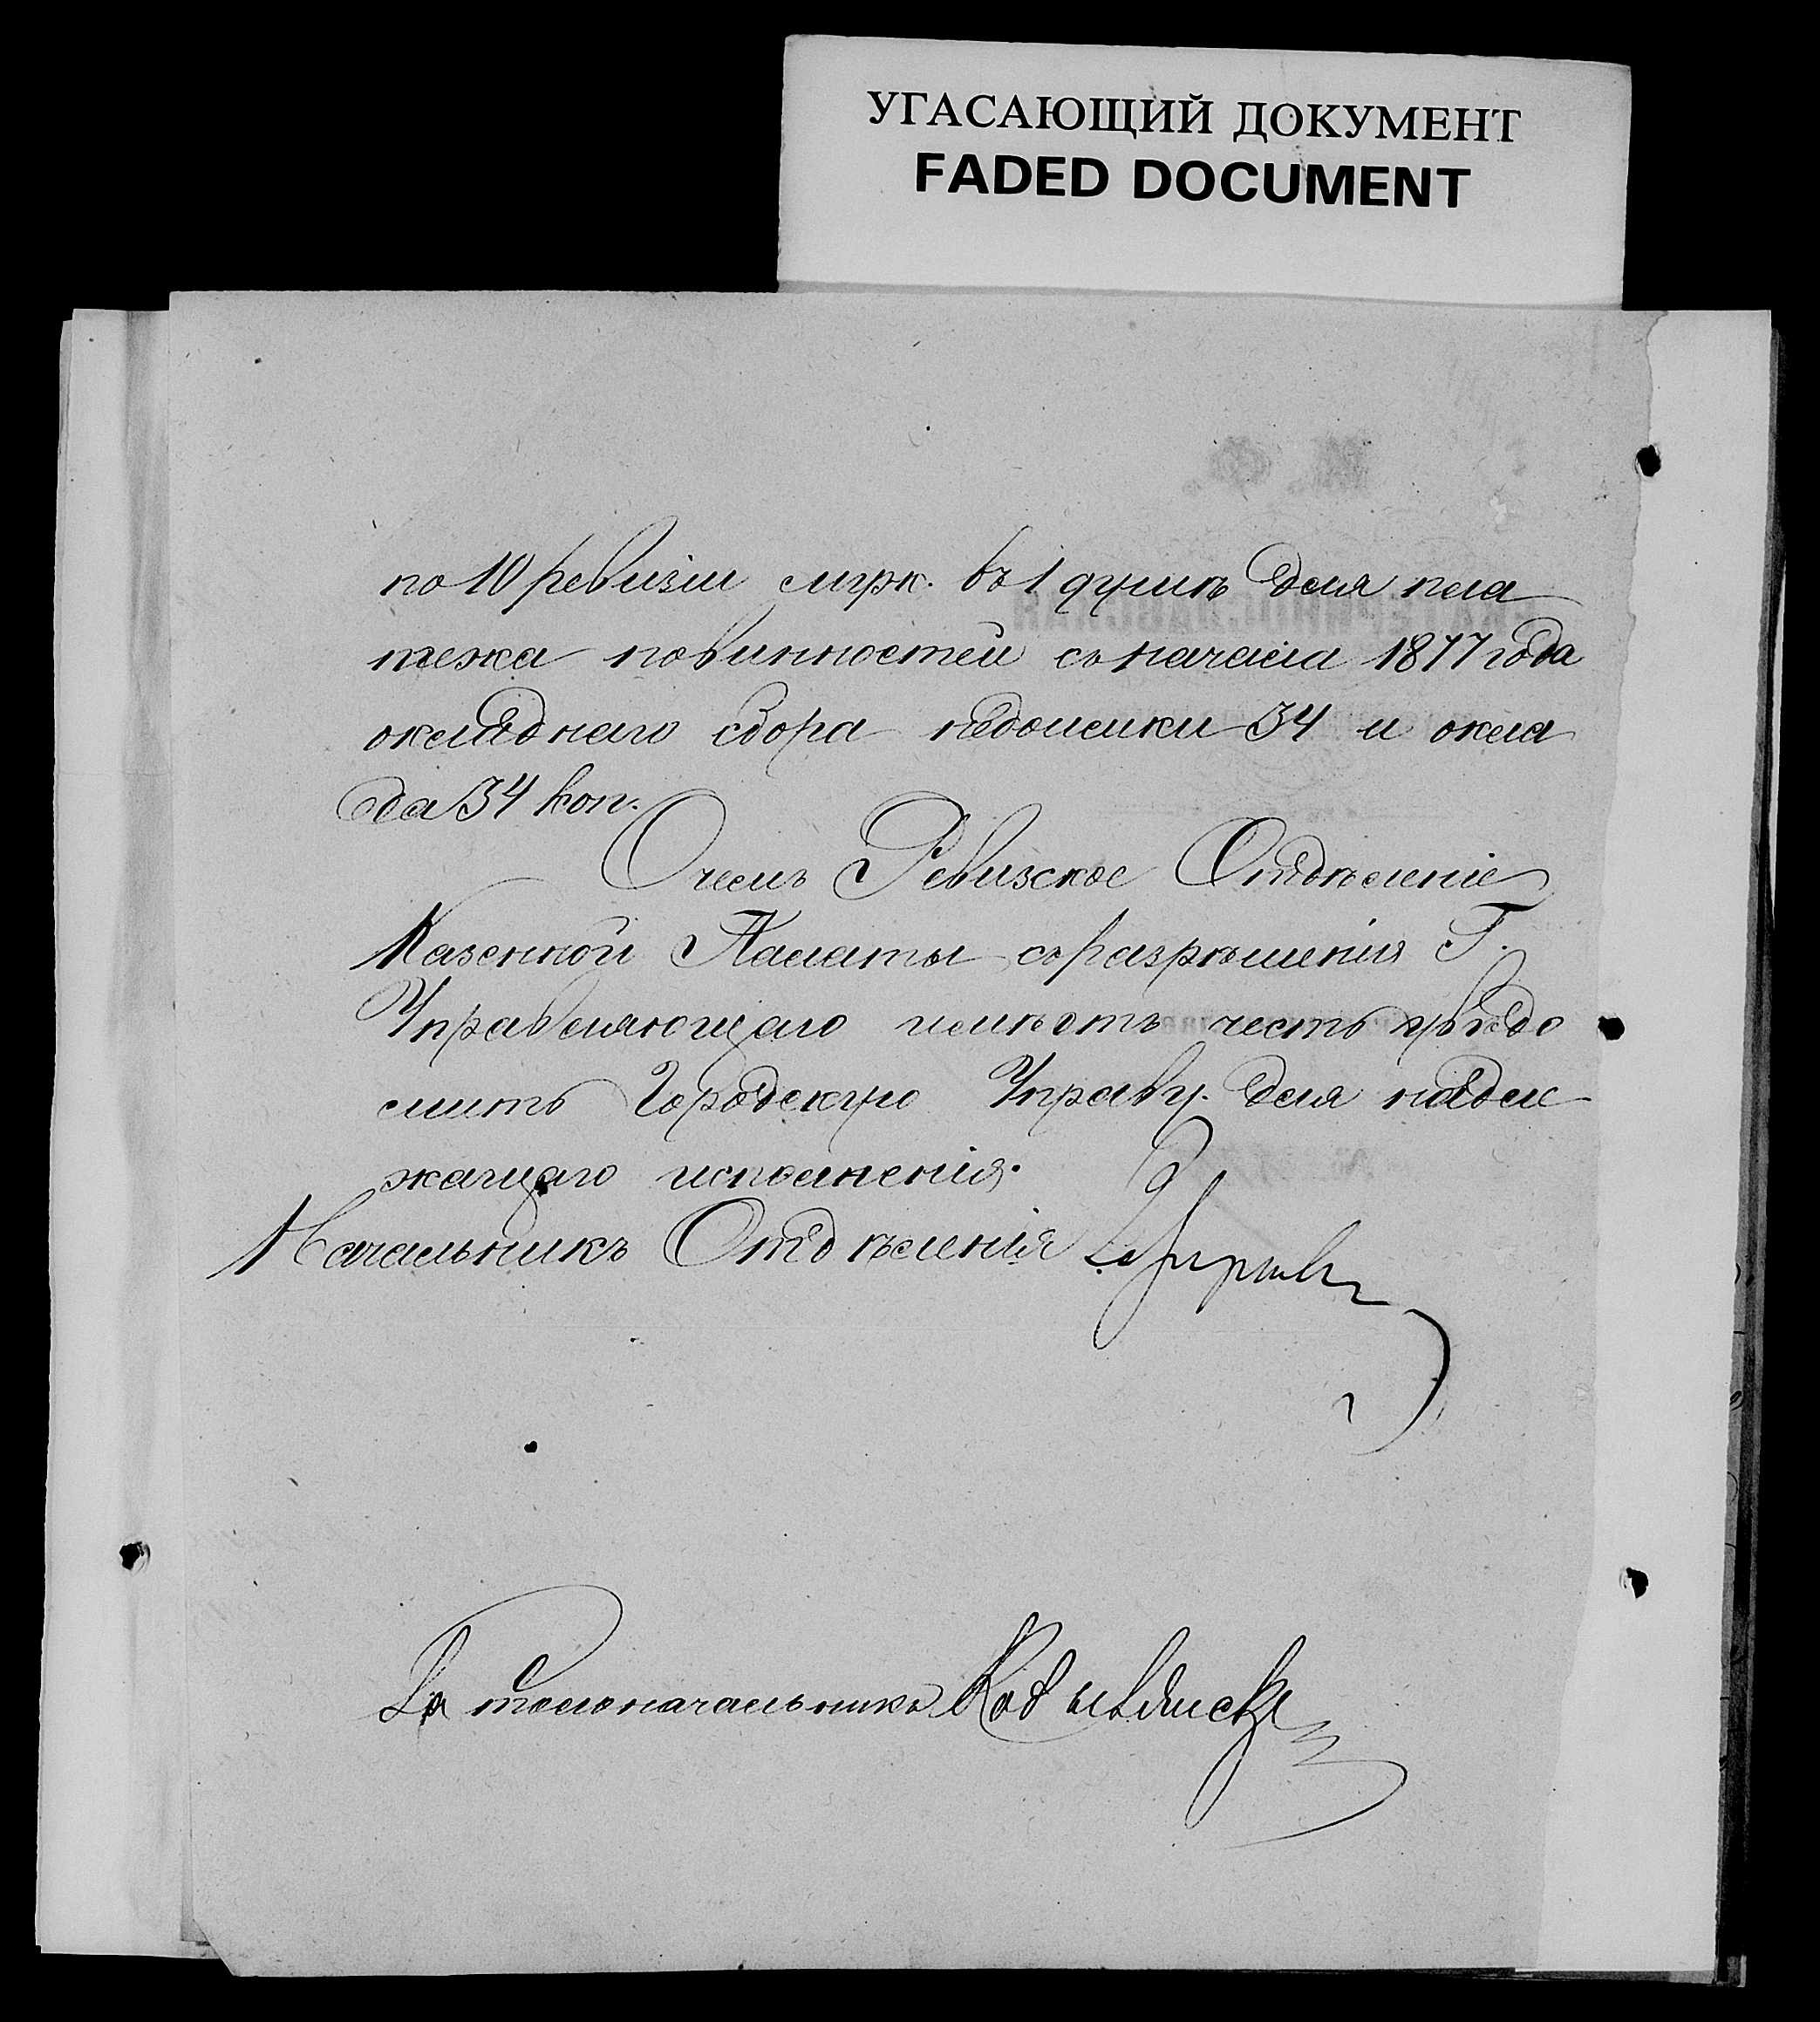 УГАСАЮЩИЙ ДОКУМЕНТ
FADED DOCUMENT
по 10 ревизіи муж. въ 1 душѣ для пла
тежа повинностей съ начала 1877 года
окладнаго сбора недоимки 34 и окла
да 34 коп.
О чемъ Ревизское Отдѣленіе
Казенной Палаты съ разрѣшенія Г.
Управляющаго имѣетъ честь увѣдо
мить Городскую Управу для надле
жащаго исполненія.
Начальникъ Отдѣленія
За столоначальника